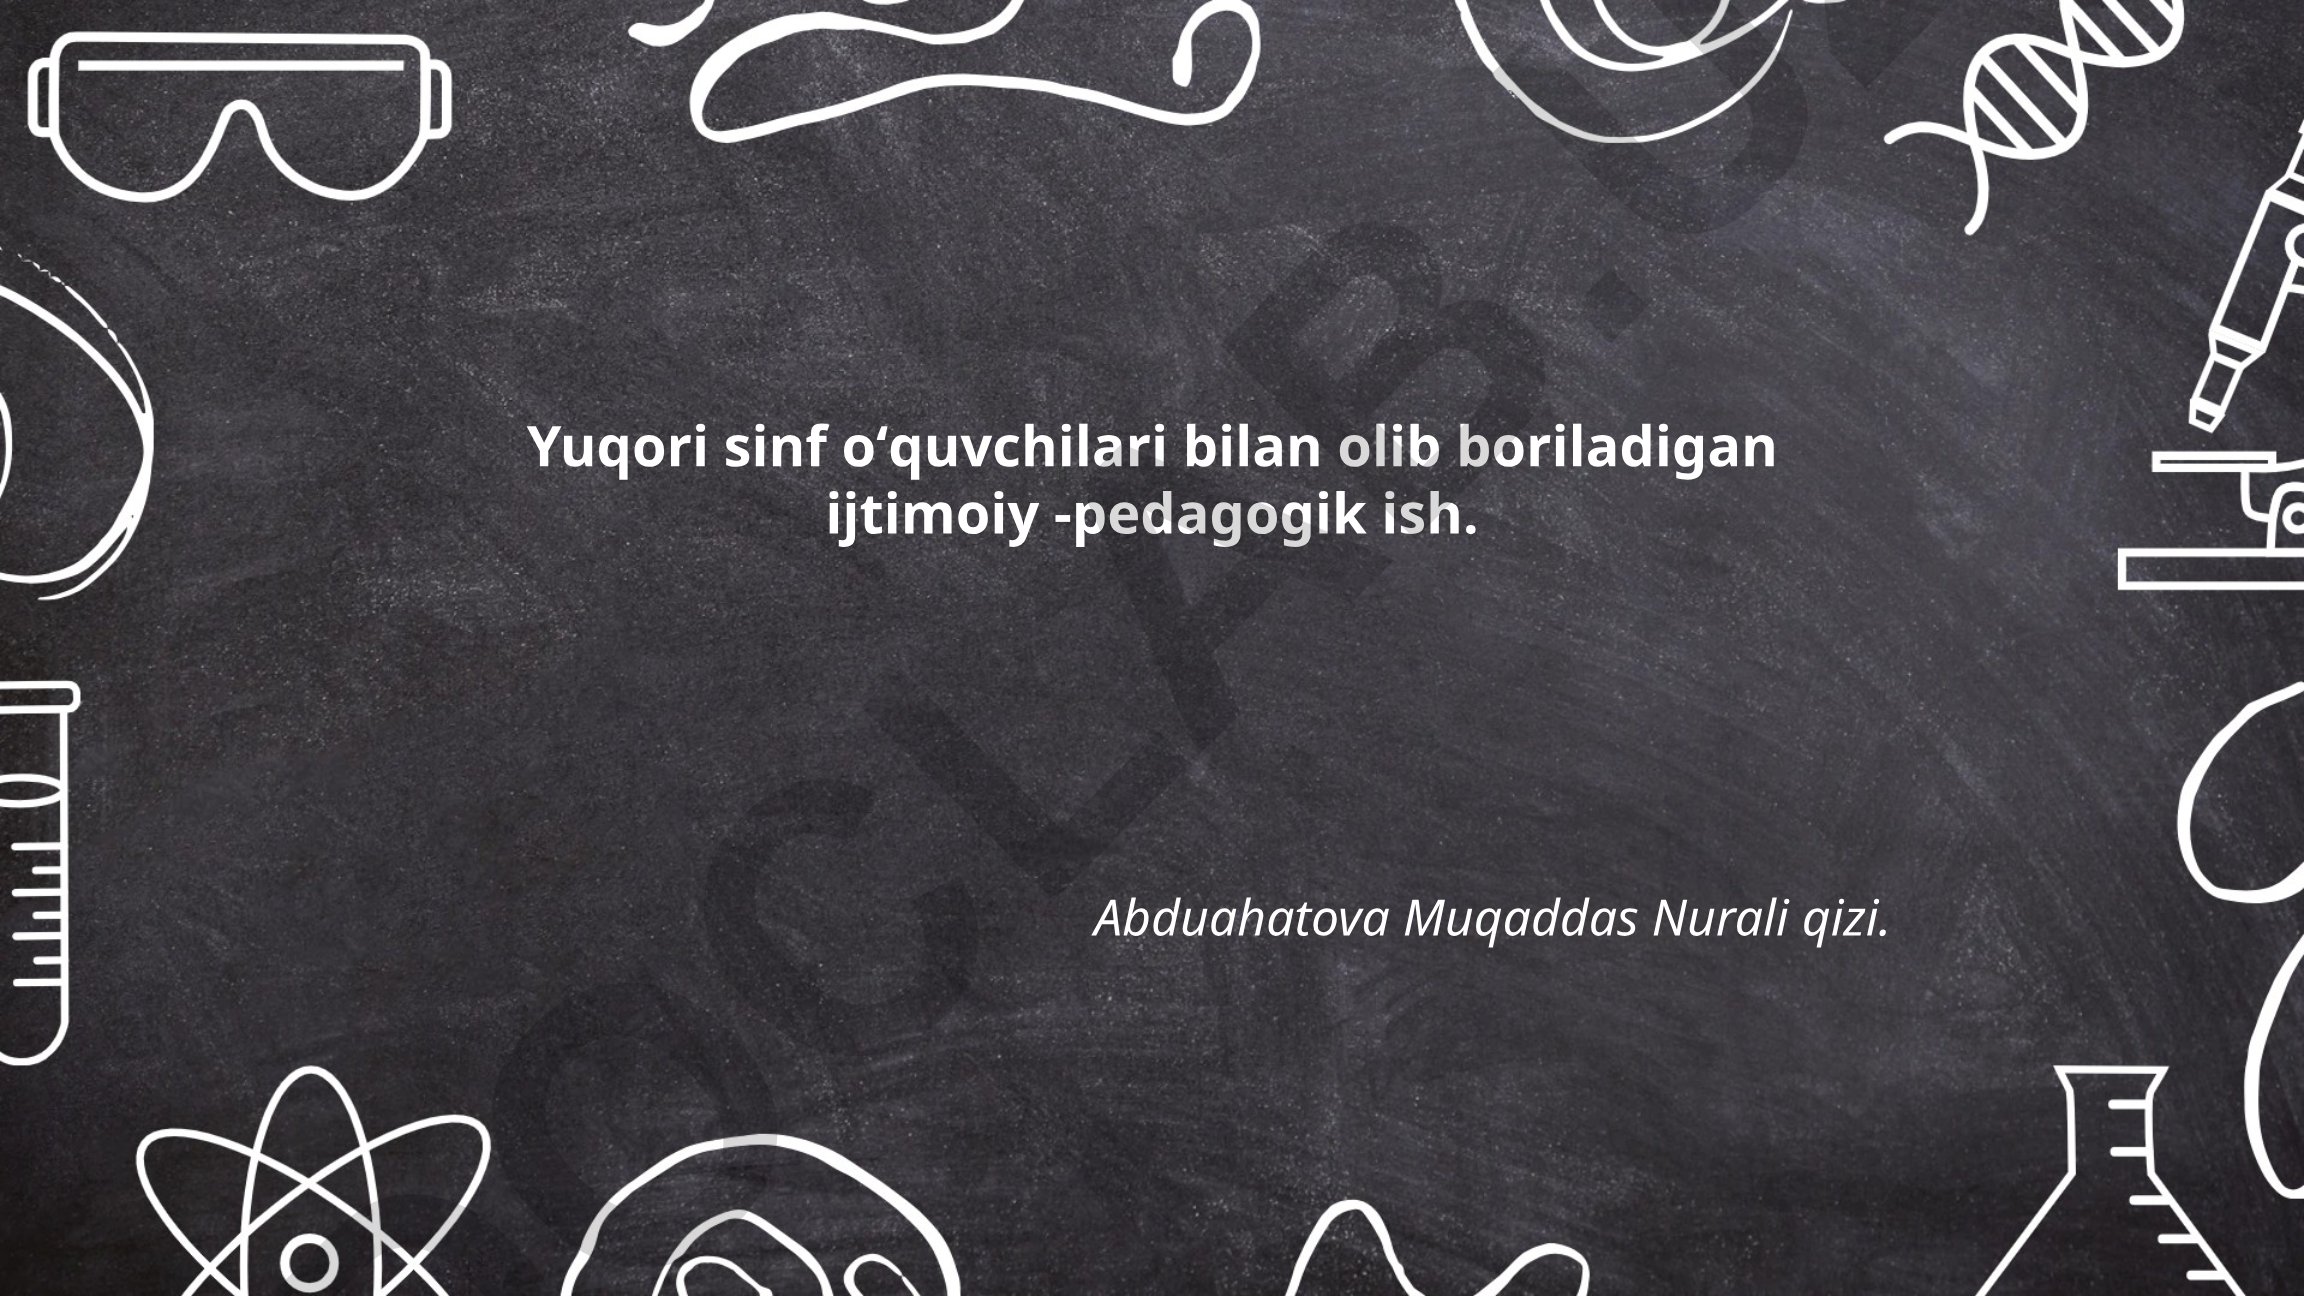 Yuqori sinf o‘quvchilari bilan olib boriladigan
ijtimoiy -pedagogik ish.
Abduahatova Muqaddas Nurali qizi.